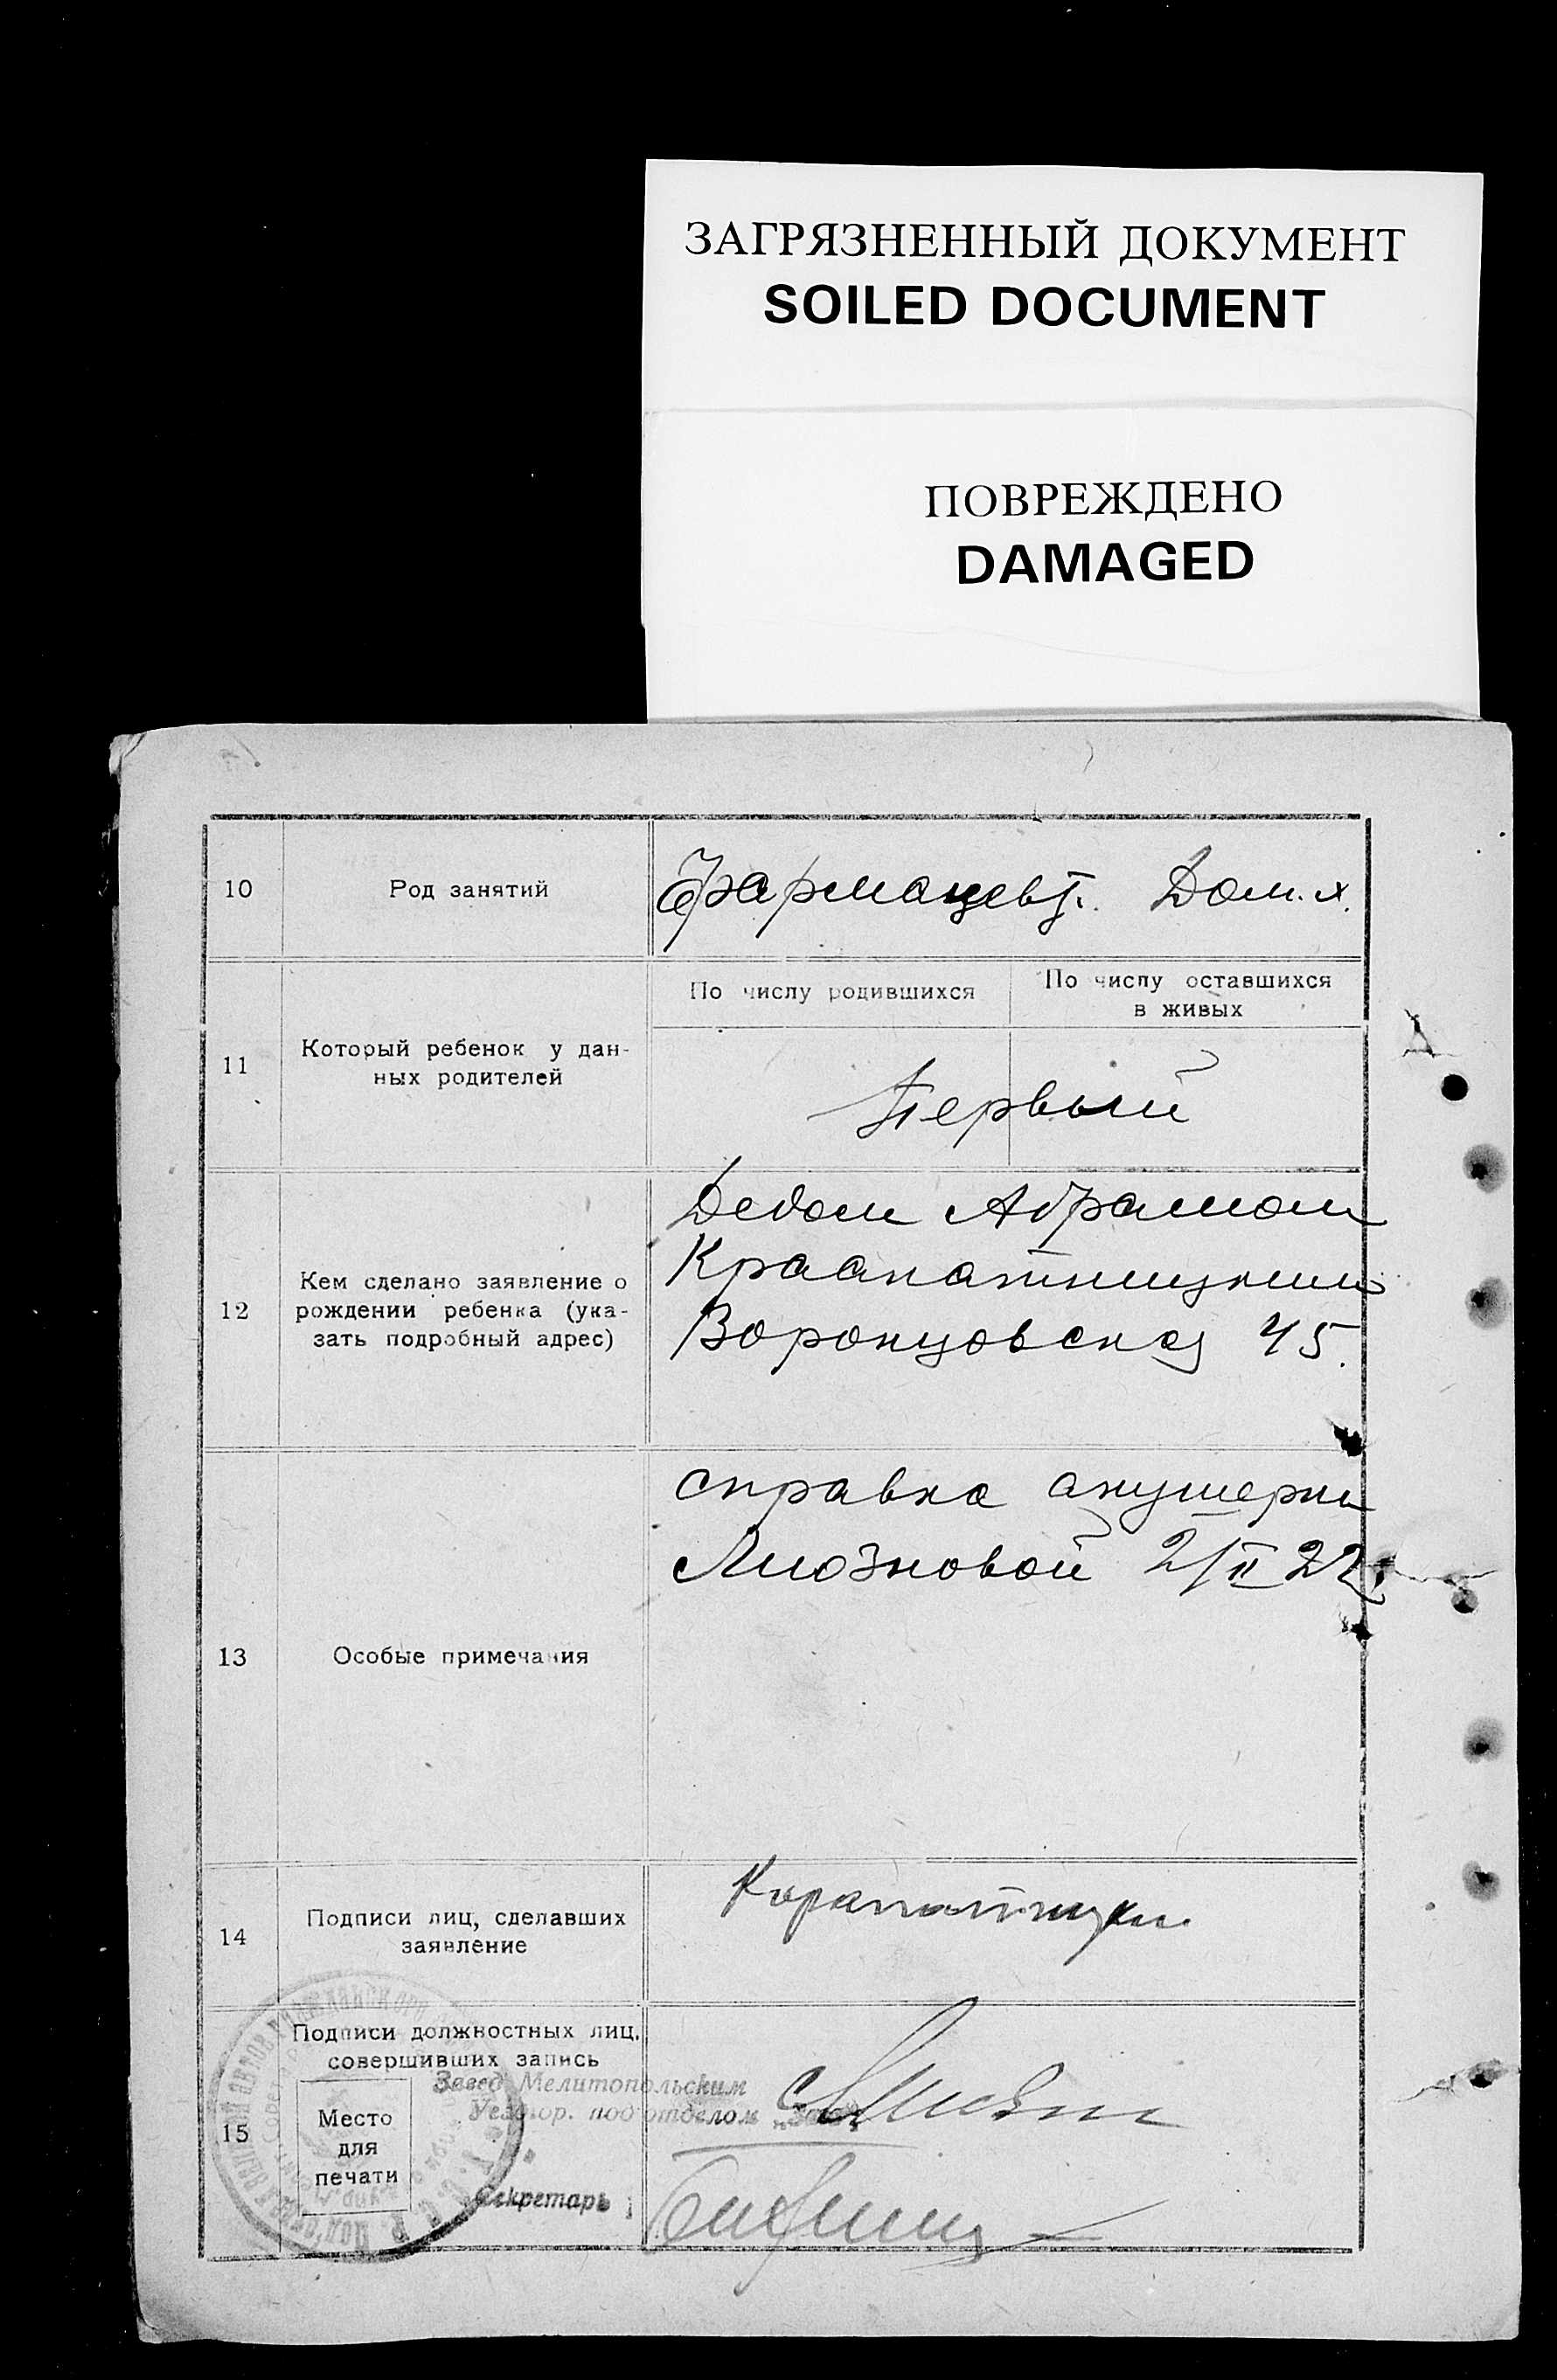 ЗАГРЯЗНЕННЫЙ ДОКУМЕНТ
SOILED DOCUMENT
ПОВРЕЖДЕНО
DAMAGED
10 Род занятий Фармацевт. Дом. х.
11 Который ребенок у дан-
ных родителей
По числу родившихся
По числу оставшихся
в живых
Первый
12 Кем сделано заявление о
рождении ребенка (ука-
зать подробный адрес)
Дедом Абрамом
Воронцовская 45.
13 Особые примечания
справка акушерки
Лиозновой 2/II 22
14 Подписи лиц, сделавших
заявление
15 Подписи должностных лиц,
совершивших запись
Место
для
печати
Завед Мелитопольским
подотделом
Секретарь